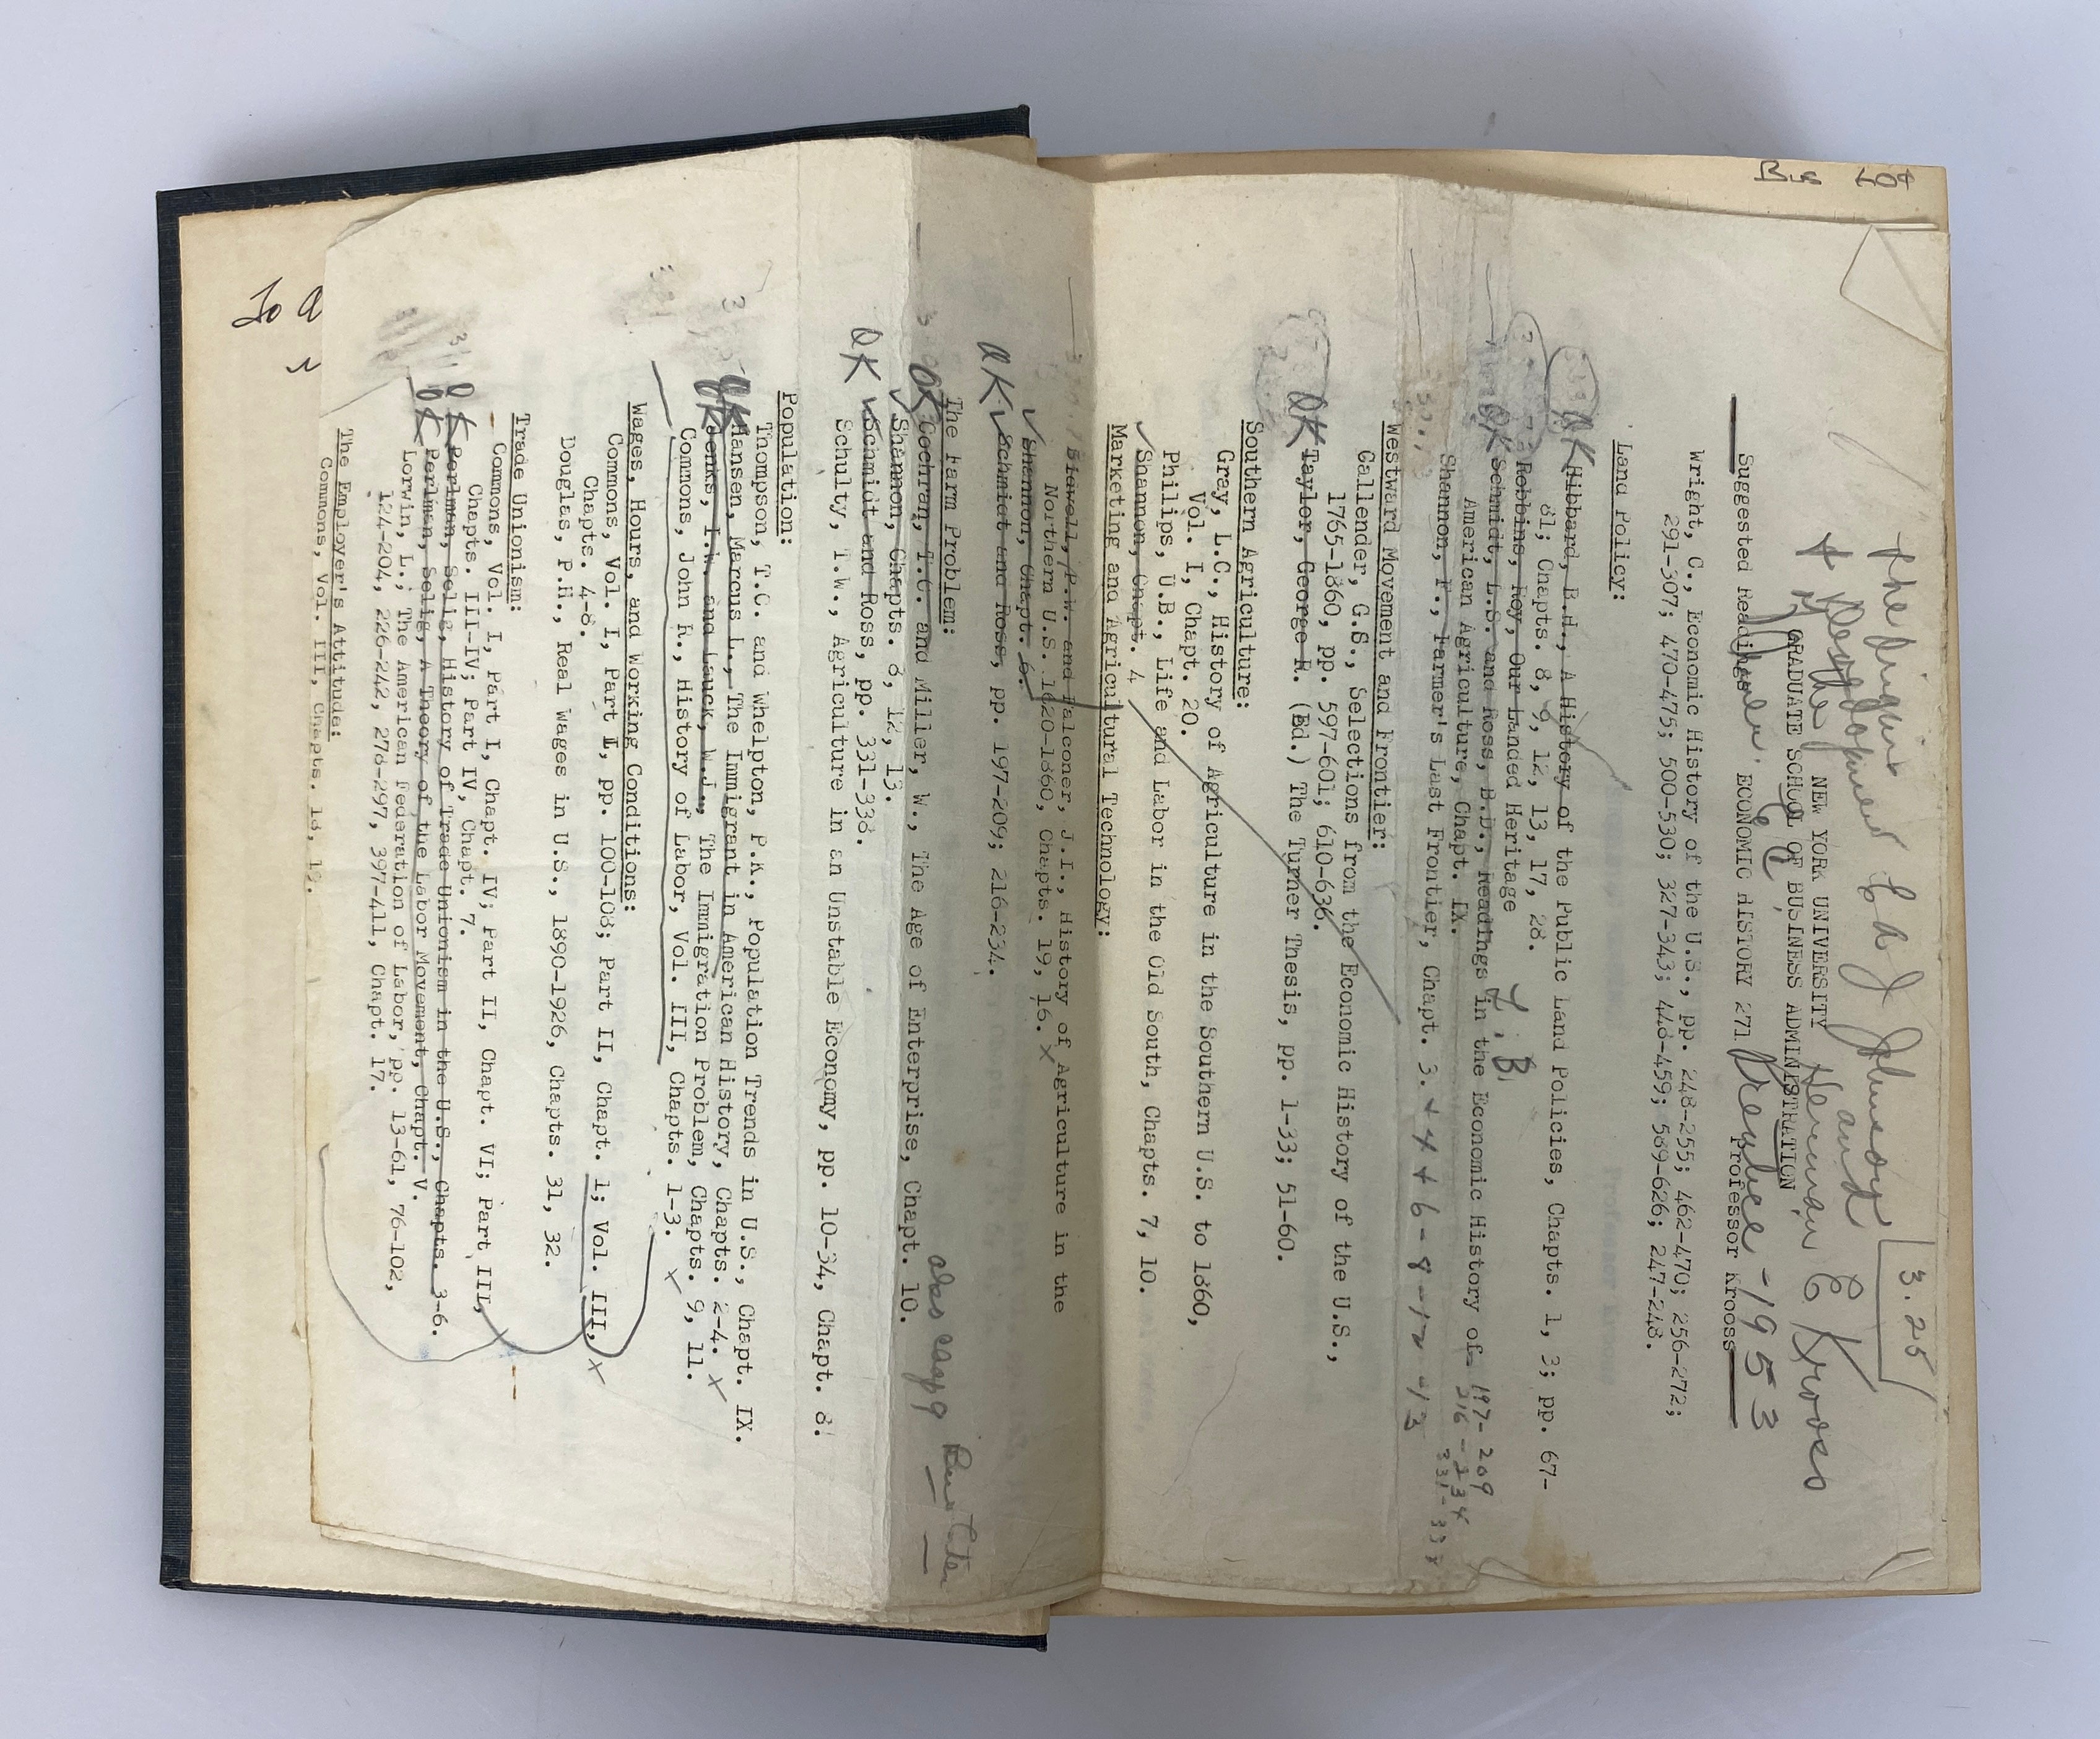 Bus 604
3.25
the Origin
& Development
& the
Edgar Johnson
and
Herman E Krooss
Prentice - 1953
NEW YORK UNIVERSITY
GRADUATE SCHOOL OF BUSINESS ADMINISTRATION
Suggested Readings ECONOMIC HISTORY 271 Professor Krooss
Wright, C., Economic History of the U.S., pp. 248-255; 462-470; 256-272;
291-307; 470-475; 500-530; 327-343; 448-459; 589-626; 247-248.
Land Policy:
OK Hibbard, B.H., A History of the Public Land Policies, Chapts. 1, 3; pp. 67-
81; Chapts. 8, 9, 12, 13, 17, 28.
Robbins, Roy, Our Landed Heritage L.B.
OK Schmidt, L.S. and Ross, B.D., Readings in the Economic History of 197-209
American Agriculture, Chapt. IX. 216-234
331-338
Shannon, F., Farmer's Last Frontier, Chapt. 3. + 4 + 6 - 8 - 12 - 13
Westward Movement and Frontier:
Callender, G.S., Selections from the Economic History of the U.S.,
1765-1860, pp. 597-601; 610-636.
OK Taylor, George R. (Ed.) The Turner Thesis, pp. 1-33; 51-60.
Southern Agriculture:
Gray, L.C., History of Agriculture in the Southern U.S. to 1860,
Vol. I, Chapt. 20.
Philips, U.B., Life and Labor in the Old South, Chapts. 7, 10.
Shannon, Chapt. 4
Marketing and Agricultural Technology:
Bidwell, P.W. and Falconer, J.I., History of Agriculture in the
Northern U.S. 1620-1860, Chapts. 19, 16. x
Shannon, Chapt. 6.
OK Schmidt and Ross, pp. 197-209; 216-234.
The Farm Problem:
OK Cochran, T.C. and Miller, W., The Age of Enterprise, Chapt. 10.
Shannon, Chapts. 8, 12, 13.
OK Schmidt and Ross, pp. 331-338.
Schultz, T.W., Agriculture in an Unstable Economy, pp. 10-34, Chapt. 8.
Population:
Thompson, T.C. and Whelpton, P.K., Population Trends in U.S., Chapt. IX.
OK Hansen, Marcus L., The Immigrant in American History, Chapts. 2-4. x
OK Jenks, I.W. and Lauck, W.J., The Immigration Problem, Chapts. 9, 11.
Commons, John R., History of Labor, Vol. III, Chapts. 1-3. x
Wages, Hours, and Working Conditions:
Commons, Vol. I, Part I, pp. 100-108; Part II, Chapt. 1; Vol. III, x
Chapts. 4-8.
Douglas, P.H., Real Wages in U.S., 1890-1926, Chapts. 31, 32.
Trade Unionism:
Commons, Vol. I, Part I, Chapt. IV; Part II, Chapt. VI; Part III,
Chapts. III-IV; Part IV, Chapt. 7.
OK Perlman, Selig, History of Trade Unionism in the U.S., Chapts. 3-6.
OK Perlman, Selig, A Theory of the Labor Movement, Chapt. V.
Lorwin, L., The American Federation of Labor, pp. 13-61, 76-102,
124-204, 226-242, 278-297, 397-411, Chapt. 17.
The Employer's Attitude:
Commons, Vol. III, Chapts. 18, 19.